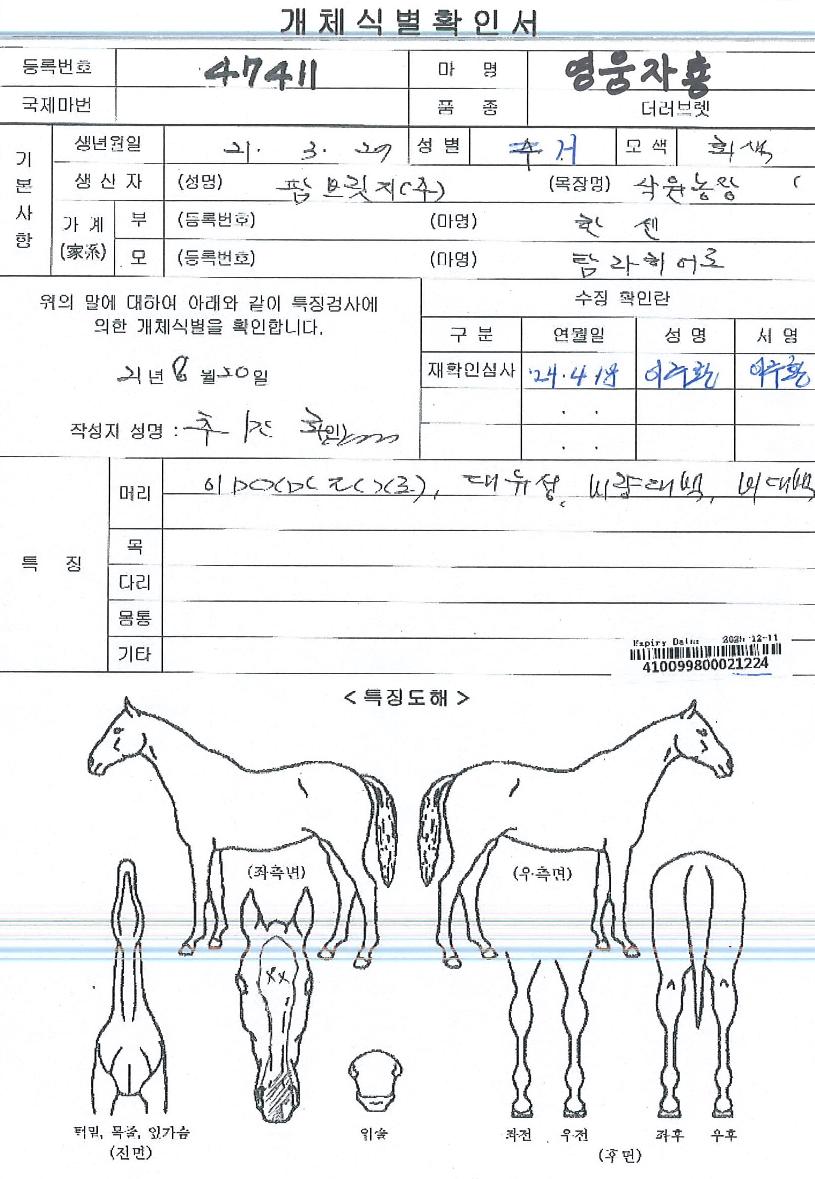 개체식별확인서
등록번호 47411 마 명 영웅자룡
국제마번 품 종 더러브렛
기본사항
생년월일 21. 3. 29 성별 수 거 모색 회색
생산자 (성명) 팜브릿지(주) (목장명) 삭원농장 (
가계 (家系) 부 (등록번호) (마명) 한센
모 (등록번호) (마명) 탐라히어로
위의 말에 대하여 아래와 같이 특징검사에
의한 개체식별을 확인합니다.
21년 8월 20일
작성자 성명 :
수징 확인란
구 분 연월일 성 명 서 명
재확인심사 '24.4.18 이주환 이주환
. .
. .
특 징
머리 대유성, 비량대백, 비대백
목
다리
몸통
기타
Expiry Date: 2025-12-11
410099800021224
<특징도해>
(좌측면) (우측면)
XX
턱밑, 목줄, 앞가슴
(전면)
위술
좌전 우전 좌후 우후
(후면)